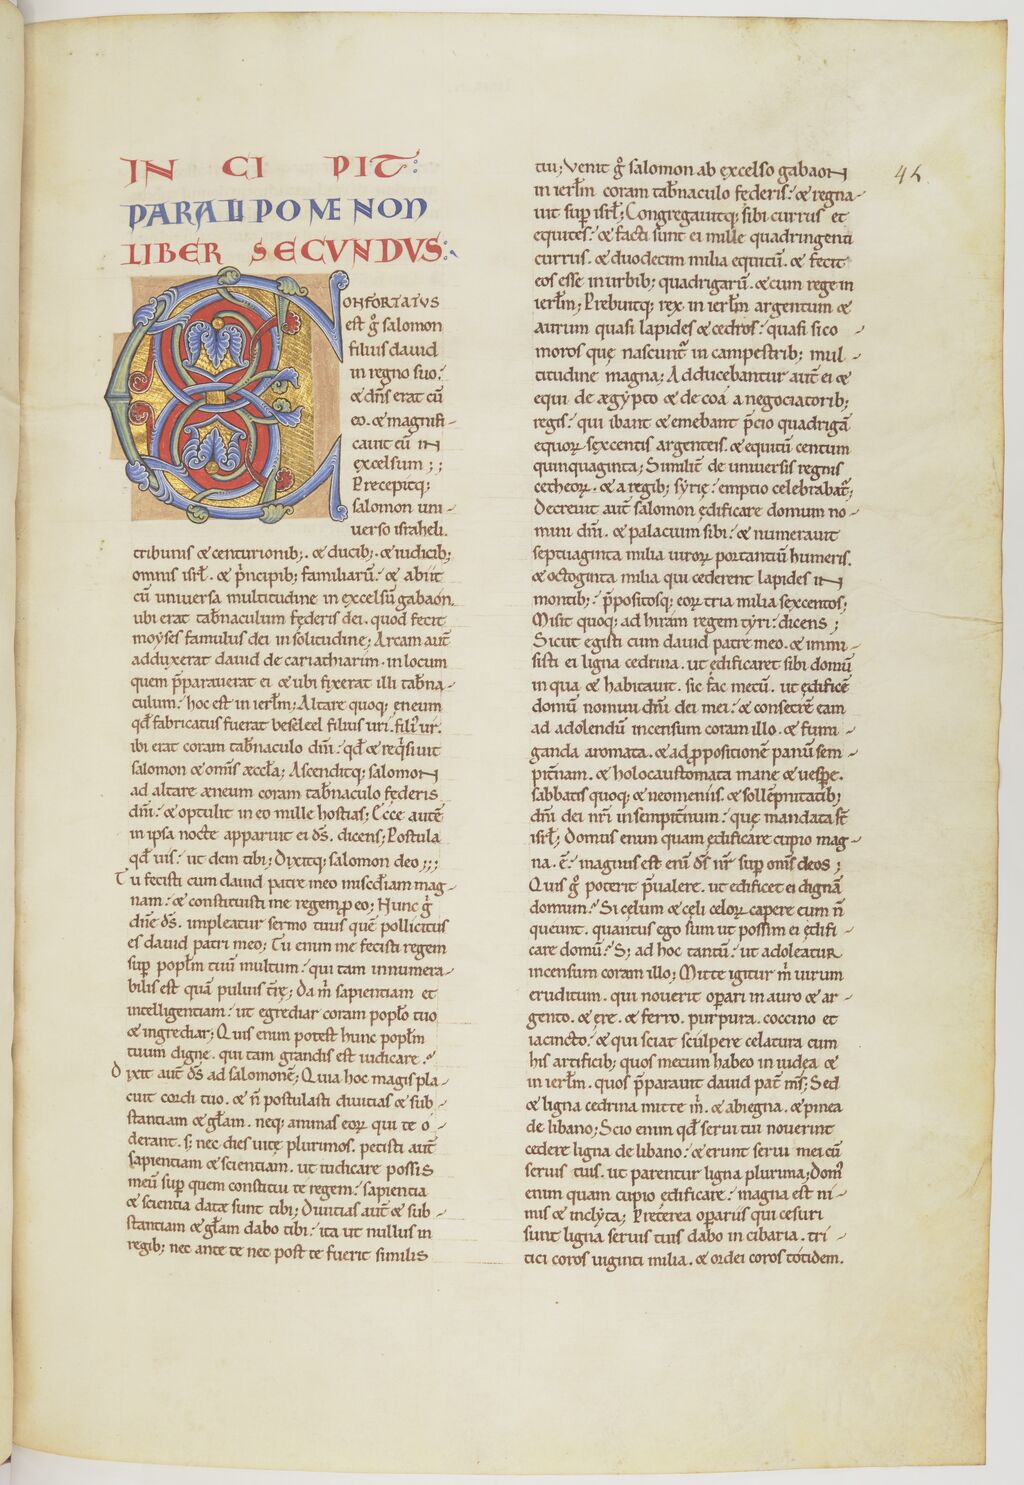 IN CI PIT:
PARALIPOMENON
LIBER SECVNDVS:
CONFORTATVS
est g̊ salomon
filius dauid
in regno suo:
& dn̄s erat cū
eo. & magnifi-
cauit cū iN
excelsum ;;
Precepitq;
salomon uni-
uerso israheli.
tribunis & centurionib;. & ducib;. & iudicib;
omnis isrł. & p̄ncipib; familiarū: & abiit
cū uniuersa multitudine in excelsū gabaon.
ubi erat tab̄naculum fęderis dei. quod fecit
moyses famulus dei in solitudine; Arcam aut̄
adduxerat dauid de cariathiarim. in locum
quem p̄parauerat ei & ubi fixerat illi tab̄na-
culum: hoc est in ierłm; Altare quoq; ęneum
qd̄ fabricatus fuerat beseleel filius uri. filii ur.
ibi erat coram tab̄naculo dn̄i: qd̄ & reqͥsiuit
salomon & omīs æccła; Ascenditq; salomoN
ad altare æneum coram tab̄naculo fęderis
dn̄i: & optulit in eo mille hostias; Ecce autē
in ipsa nocte apparuit ei d̄s. dicens; Postula
qd̄ uis: ut dem tibi; Dixitq; salomon deo;;;
Tu fecisti cum dauid patre meo misc̄diam mag-
nam: & constituisti me regem ꝓ eo; Hunc g̊
dn̄e d̄s. impleatur sermo tuus quē pollicitus
es dauid patri meo; Tu enim me fecisti regem
sup̄ popłm tuū multum: qui tam innumera-
bilis est quā puluis tr̄ę; Da mͥ sapientiam et
intelligentiam: ut egrediar coram popło tuo
& ingrediar; Quis enim potest hunc popłm
tuum digne. qui tam grandis est iudicare:
Dixit aut̄ d̄s ad salomonē; Quia hoc magis pla-
cuit cordi tuo. & n̄ postulasti diuitias & sub-
stantiam & głam. neq; animas eoꝝ qui te o-
derant. s; nec dies uitę plurimos. petisti aut̄
sapientiam & scientiam. ut iudicare possis
meū sup̄ quem constitui te regem: sapientia
& scientia data sunt tibi; Diuitias aut̄ & sub-
stantiam & głam dabo tibi: ita ut nullus in
regib; nec ante te nec post te fuerit similis
tui; Venit g̊ salomon ab excelso gabaoN
in ierłm coram tab̄naculo fęderis: & regna-
uit sup̄ isrł; Congregauitq; sibi currus et
equites: & facti sunt ei mille quadringenti
currus. & duodecim milia equitū. & fecit
eos esse in urbib; quadrigarū. & cum rege in
ierłm; Prebuitq; rex in ierłm argentum &
aurum quasi lapides & cedros: quasi sico-
moros quę nascunt̄ in campestrib; mul-
titudine magna; Adducebantur aut̄ ei &
equi de ægypto & de coa a negociatorib;
regis: qui ibant & emebant p̄cio quadrigā
equoꝝ sexcentis argenteis. & equitū centum
quinquaginta; Similit̄ de uniuersis regnis
cetheoꝝ. & a regib; syrię: emptio celebrabat̄;
Decreuit aut̄ salomon ędificare domum no-
mini dn̄i. & palacium sibi: & numerauit
septuaginta milia uiroꝝ portantiū humeris.
& octoginta milia qui cederent lapides iN
montib;: p̄positosq; eoꝝ tria milia sexcentos;
Misit quoq; ad hiram regem tyri: dicens;
Sicut egisti cum dauid patre meo. & immi-
sisti ei ligna cedrina. ut ędificaret sibi domū
in qua & habitauit. sic fac mecū. ut ędificē
domū nomini dn̄i dei mei: & consecrē eam
ad adolendū incensum coram illo. & fumi-
ganda aromata. & ad ꝓpositionē panū sem-
pit̄nam. & holocaustomata mane & uesp̄e.
sabbatis quoq; & neomeniis. & sollēpnitatib;
dn̄i dei nr̄i in sempit̄num: quę mandata st̄
isrł; Domus enim quam ędificare cupio mag-
na. ē: magnus est eni d̄s nr̄ sup̄ omīs deos;
Quis g̊ poterit p̄ualere. ut edificet ei dignā
domum: Si cęlum & cęli celoꝝ capere eum n̄
queunt. quantus ego sum ut possim ei ędifi-
care domū: S; ad hoc tantū: ut adoleatur
incensum coram illo; Mitte igitur mͥ uirum
eruditum. qui nouerit op̄ari in auro & ar-
gento. & ęre. & ferro. purpura. coccino et
iacincto: & qui sciat sculpere celatura cum
his artificib; quos mecum habeo in iudea &
in ierłm. quos p̄parauit dauid pat̄ ms̄; Sed
& ligna cedrina mitte mͥ. & abiegna. & pinea
de libano; Scio enim qd̄ serui tui nouerint
cedere ligna de libano: & erunt serui mei cū
seruis tuis. ut parentur ligna plurima; Domꝰ
enim quam cupio edificare: magna est ni-
mis & inclyta; Pretęrea op̄ariis qui cesuri
sunt ligna seruis tuis dabo in cibaria. tri-
tici coros uiginti milia. & ordei coros totidem.